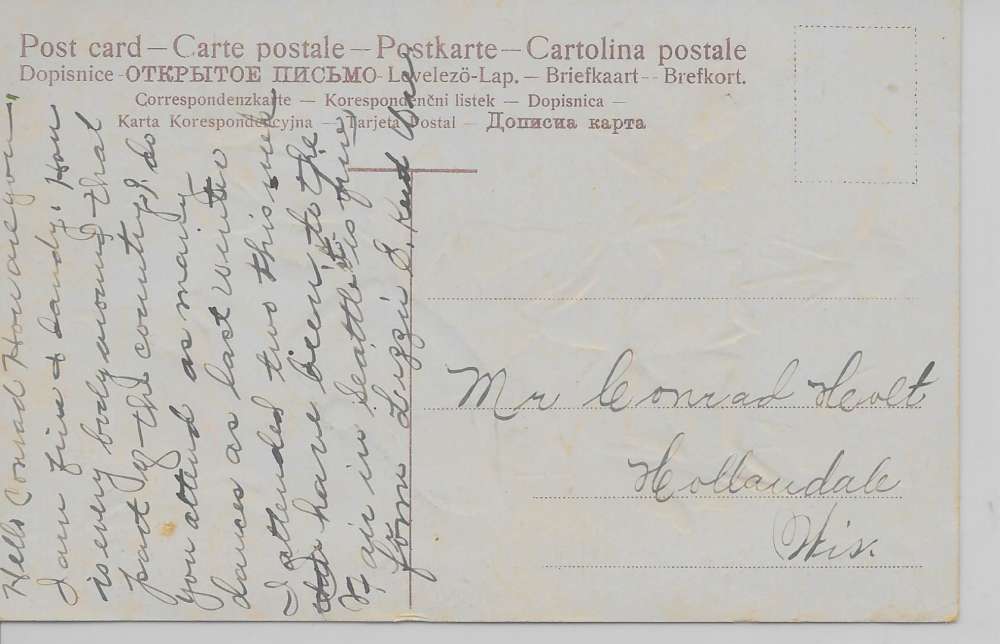 Post card – Carte postale – Postkarte – Cartolina postale
Dopisnice – ОТКРЫТОЕ ПИСЬМО – Levelezö-Lap. – Briefkaart – Brefkort.
Correspondenzkarte – Korespondenční listek – Dopisnica –
Karta Korespondencyjna – Tarjeta Postal – Дописна карта
Hello Conrad How are you
I am fine & dandy. How
is every body around that
part of the country, do
you attend as many
dances as last winter
I attended two this week
have been to the
Fair in Seattle its fine
from Lizzie S. Kent Wash
Mr Conrad Hevlt
Hollandale
Wis.